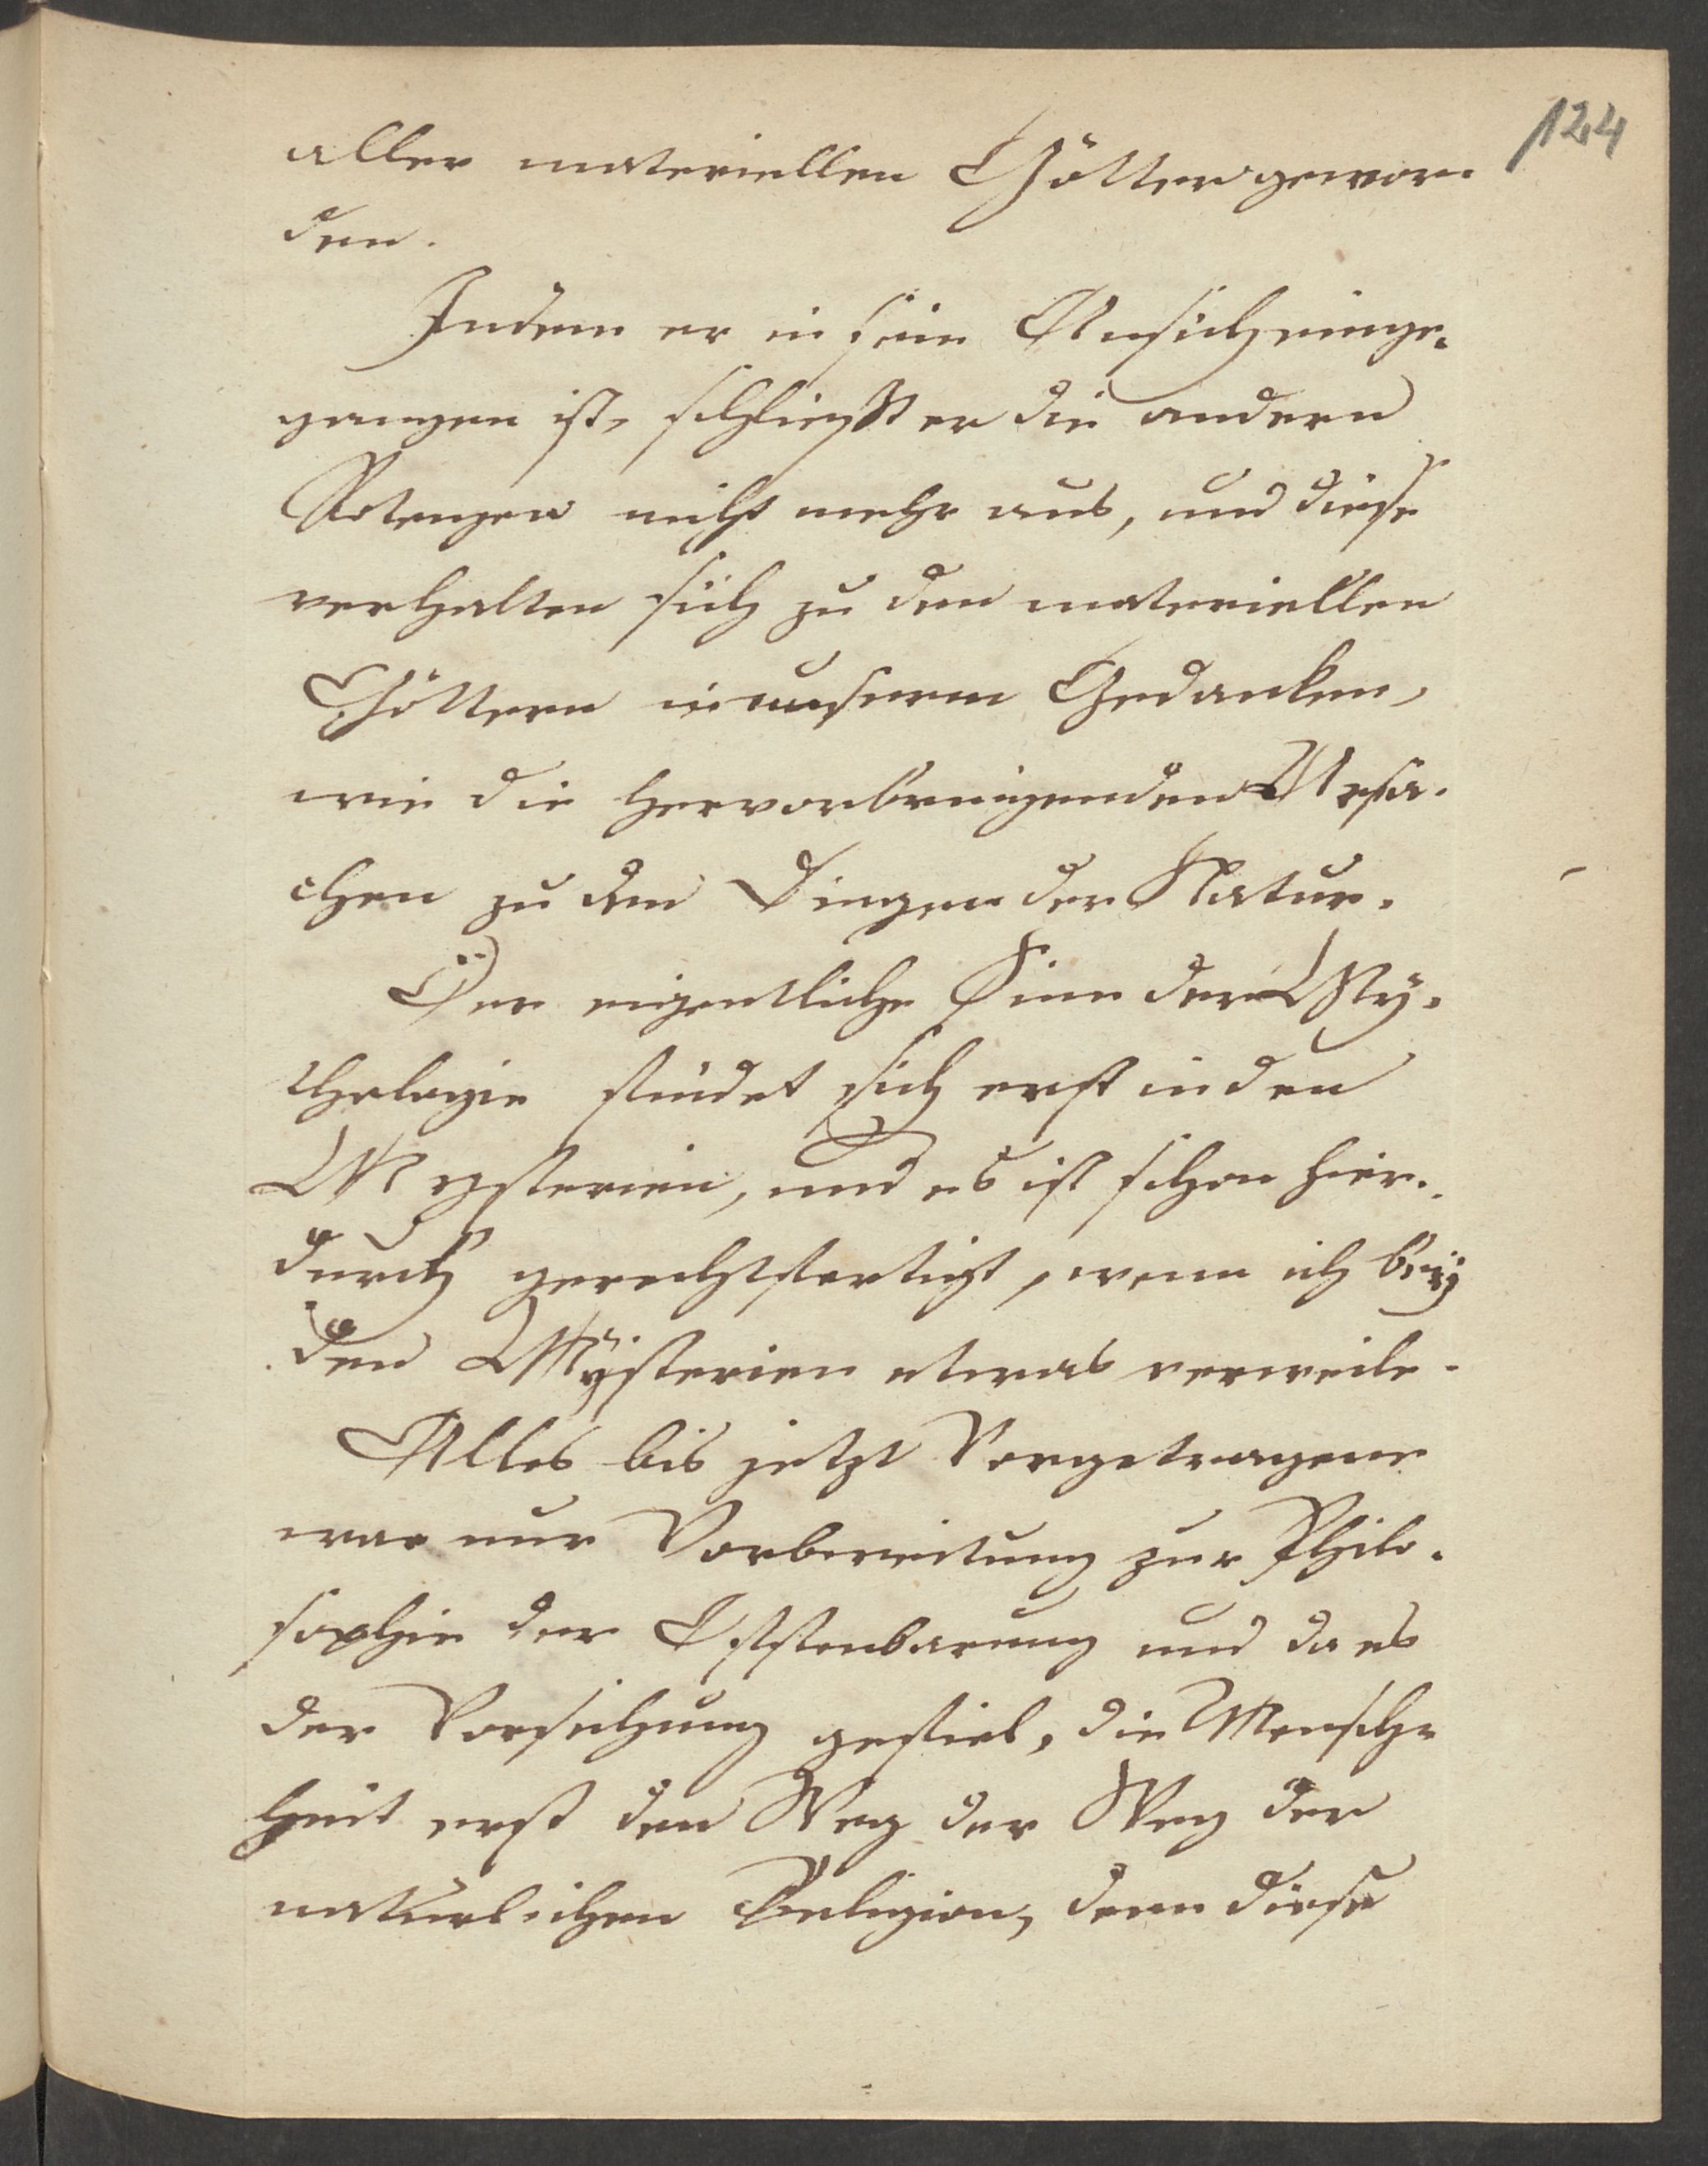 124
aller materiellen Götter gewor-
den.
Indem er in sein Ansich einge-
gangen ist, schließt er die andern
Potenzen nicht mehr aus, und diese
verhalten sich zu den materiellen
Göttern in unserem Gedanken,
wie die hervorbringenden Ursa-
chen zu den Dingen der Natur.
Der eigentliche Sinn der My-
thologie findet sich erst in den
Mysterien, und es ist schon hier-
durch gerechtfertigt, wenn ich bey
den Mysterien etwas verweile.
Alles bis jetzt Vorgetragene
war nur Vorbereitung zur Philo-
sophie der Offenbarung und da es
der Vorsehung gefiel, die Mensch-
heit erst den Weg der Weg der
natürlichen Religion, denn diese